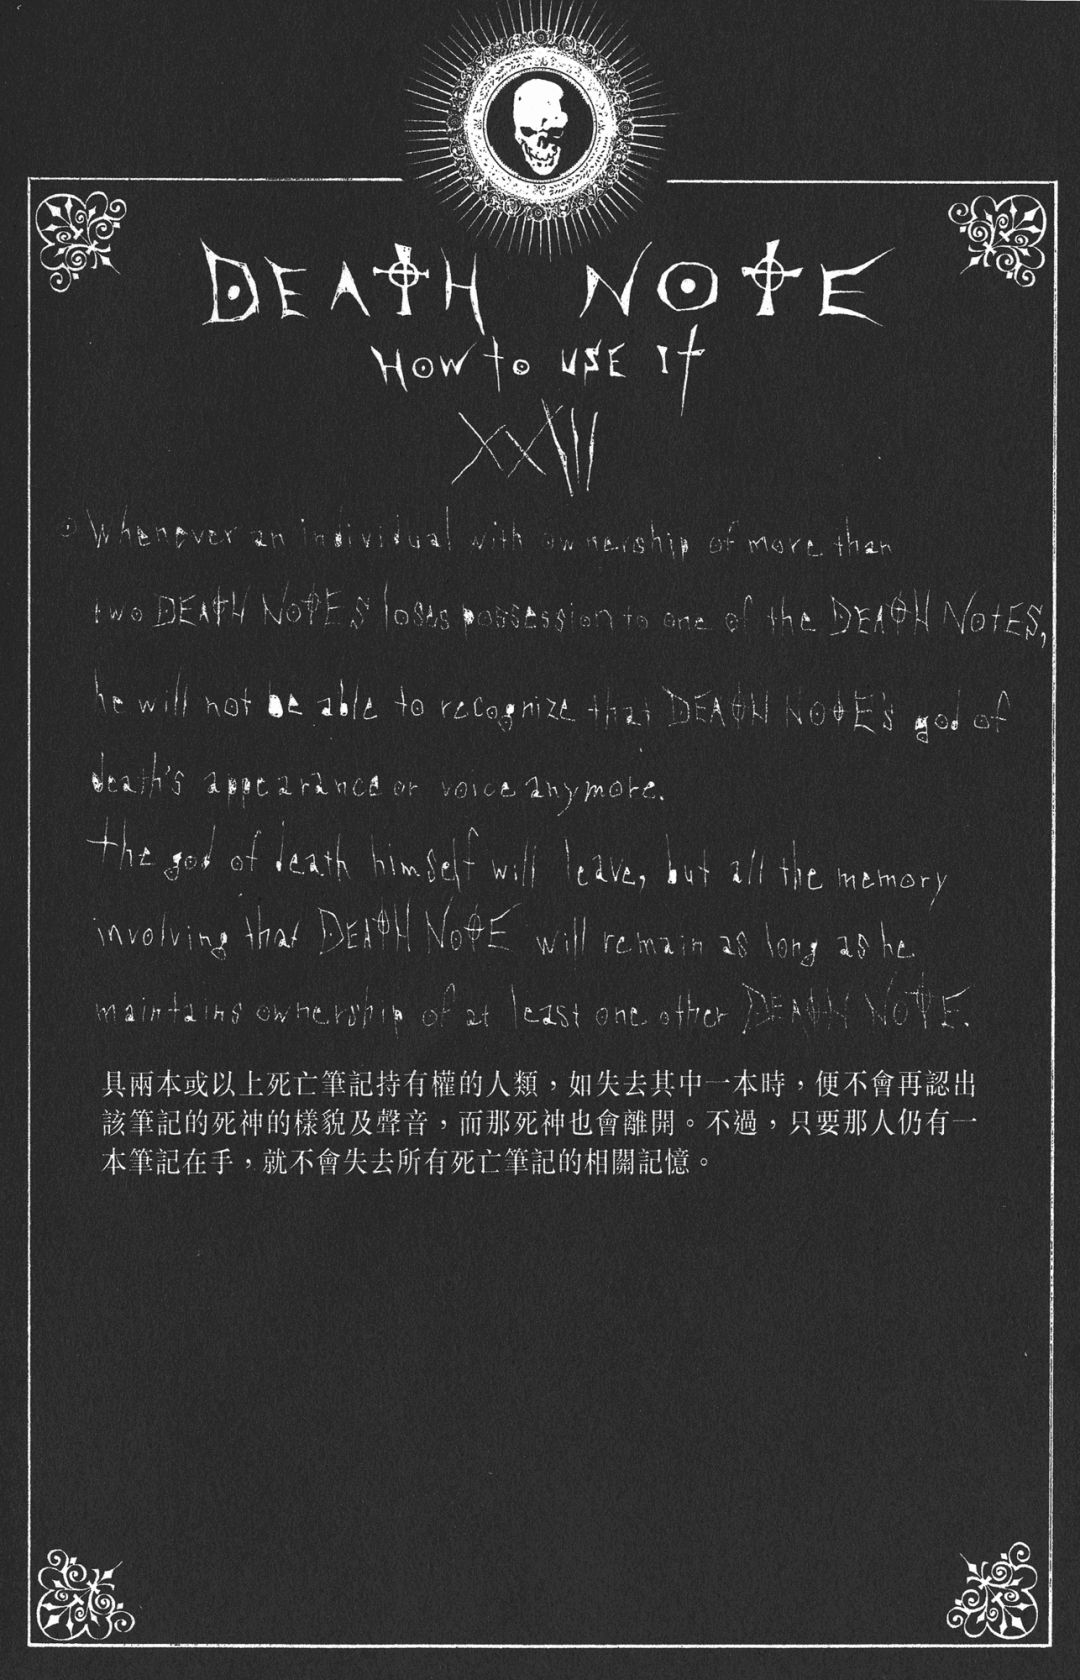 DEATH NOTE
HOW to USE It
XXIII
Whenever an individual with ownership of more than
two DEATH NOTES loses possession to one of the DEATH NOTES,
he will not be able to recognize that DEATH NOTE's god of
death's appearance or voice anymore.
the god of death himself will leave, but all the memory
involving that DEATH NOTE will remain as long as he
maintains ownership of at least one other DEATH NOTE.
具兩本或以上死亡筆記持有權的人類，如失去其中一本時，便不會再認出
該筆記的死神的樣貌及聲音，而那死神也會離開。不過，只要那人仍有一
本筆記在手，就不會失去所有死亡筆記的相關記憶。